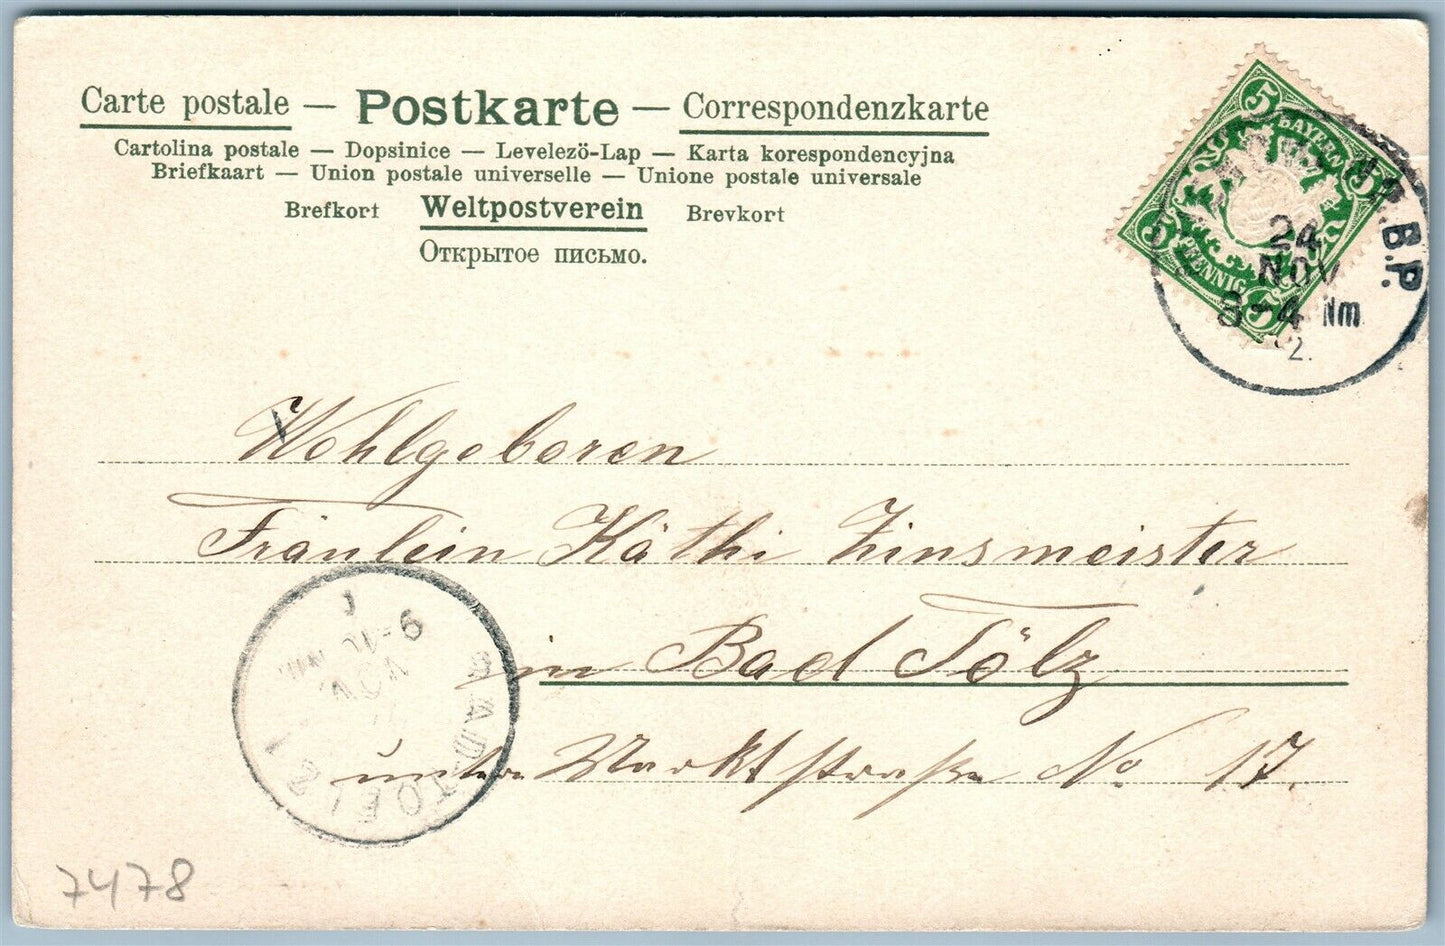 Carte postale — Postkarte — Correspondenzkarte
Cartolina postale — Dopsinice — Levelező-Lap — Karta korespondencyjna
Briefkaart — Union postale universelle — Unione postale universale
Brefkort Weltpostverein Brevkort
Открытое письмо.
5 BAYERN 5
5 PFENNIG 5
B.P.
24
NOV
3-4 Nm
2.
Wohlgeboren
Fräulein Käthi Zinsmeister
in Bad Tölz
untere Marktstraße No 17.
BAD-TOELZ I
NOV
9-10
7478